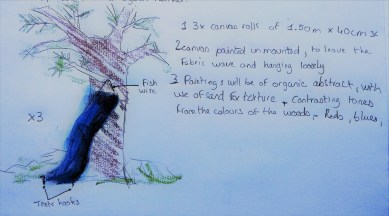 1 3x canvas rolls of 1.50m x 40cm
2 canvas painted unmounted, to leave the
fabric wave and hanging loosely
3 Paintings will be of organic abstract, with
use of sand for texture + Contrasting tones
from the colours of the woods - Reds, blues,
Fish
wire
x3
Tent hooks